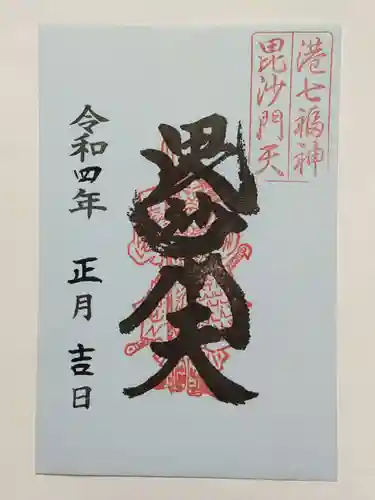 港七福神
毘沙門天
毘沙門天
令和四年 正月 吉日